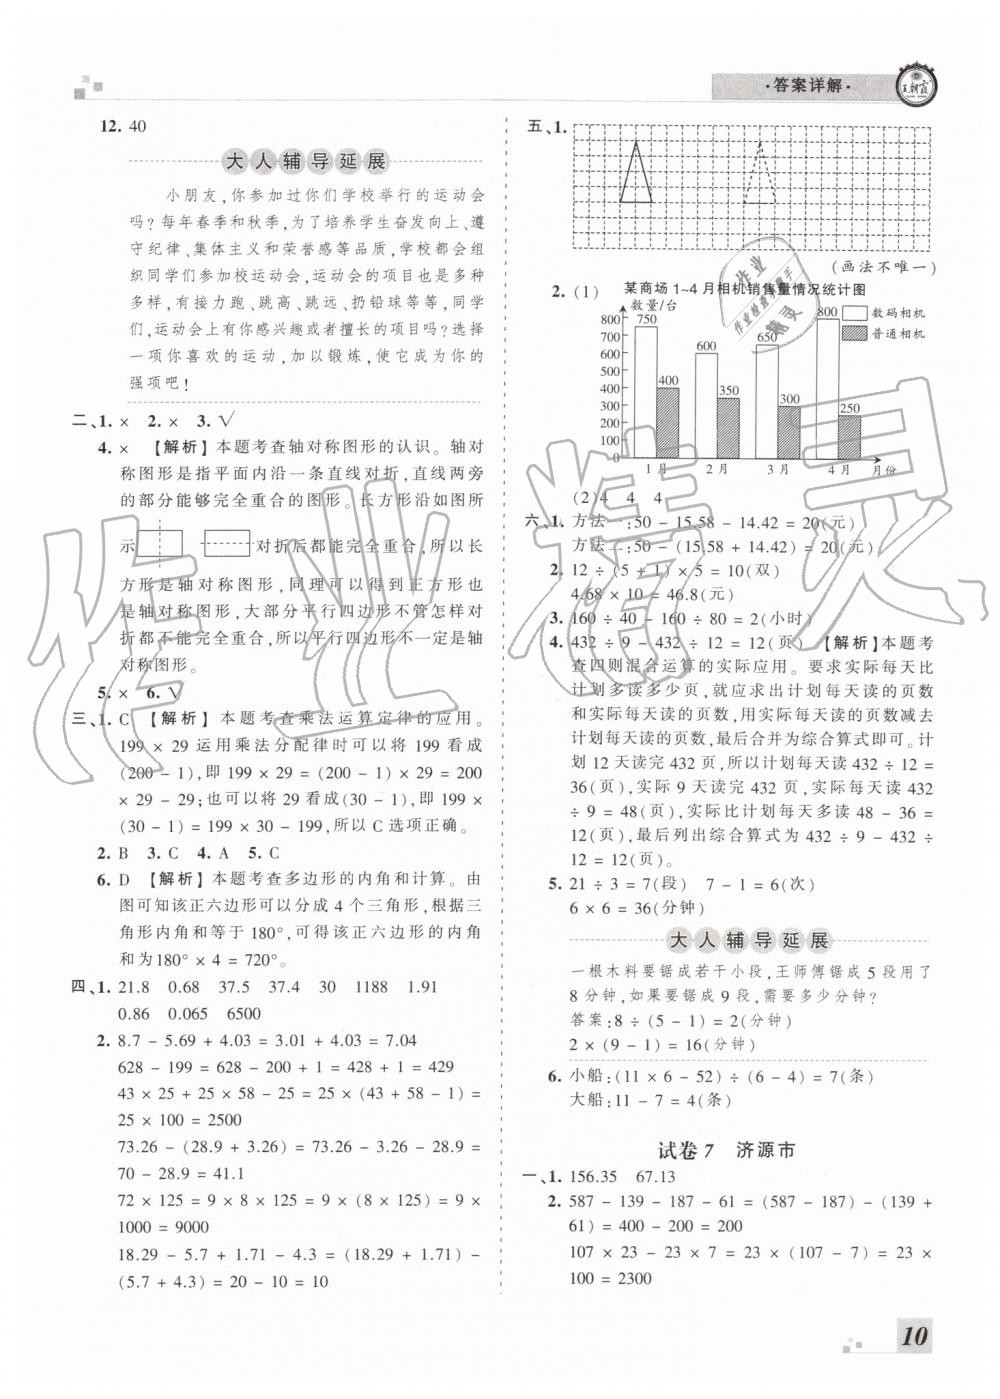 ·答案详解·
王朝霞
12. 40
大人辅导延展
小朋友,你参加过你们学校举行的运动会
吗?每年春季和秋季,为了培养学生奋发向上、遵
守纪律、集体主义和荣誉感等品质,学校都会组
织同学们参加校运动会,运动会的项目也是多种
多样,有接力跑、跳高、跳远、扔铅球等等,同学
们,运动会上有你感兴趣或者擅长的项目吗?选择
一项你喜欢的运动,加以锻炼,使它成为你的
强项吧!
二、1. × 2. × 3. √
4. × 【解析】本题考查轴对称图形的认识。轴对
称图形是指平面内沿一条直线对折,直线两旁
的部分能够完全重合的图形。长方形沿如图所
示 对折后都能完全重合,所以长
方形是轴对称图形,同理可以得到正方形也
是轴对称图形,大部分平行四边形不管怎样对
折都不能完全重合,所以平行四边形不一定是轴
对称图形。
5. × 6. √
三、1. C 【解析】本题考查乘法运算定律的应用。
199 × 29 运用乘法分配律时可以将 199 看成
(200 - 1),即 199 × 29 = (200 - 1) × 29 = 200
× 29 - 29;也可以将 29 看成(30 - 1),即 199 ×
(30 - 1) = 199 × 30 - 199,所以 C 选项正确。
2. B 3. C 4. A 5. C
6. D 【解析】本题考查多边形的内角和计算。由
图可知该正六边形可以分成 4 个三角形,根据三
角形内角和等于 180°,可得该正六边形的内角
和为180° × 4 = 720°。
四、1. 21.8 0.68 37.5 37.4 30 1188 1.91
0.86 0.065 6500
2. 8.7 - 5.69 + 4.03 = 3.01 + 4.03 = 7.04
628 - 199 = 628 - 200 + 1 = 428 + 1 = 429
43 × 25 + 25 × 58 - 25 = 25 × (43 + 58 - 1) =
25 × 100 = 2500
73.26 - (28.9 + 3.26) = 73.26 - 3.26 - 28.9 =
70 - 28.9 = 41.1
72 × 125 = 9 × 8 × 125 = 9 × (8 × 125) = 9 ×
1000 = 9000
18.29 - 5.7 + 1.71 - 4.3 = (18.29 + 1.71) -
(5.7 + 4.3) = 20 - 10 = 10
五、1.
(画法不唯一)
2. (1) 某商场 1~4 月相机销售量情况统计图
数量/台
数码相机
普通相机
800
700
600
500
400
300
200
100
0
750
400
600
350
650
300
800
250
1月 2月 3月 4月 月份
(2)4 4 4
六、1. 方法一:50 - 15.58 - 14.42 = 20(元)
方法二:50 - (15.58 + 14.42) = 20(元)
2. 12 ÷ (5 + 1) × 5 = 10(双)
4.68 × 10 = 46.8(元)
3. 160 ÷ 40 - 160 ÷ 80 = 2(小时)
4. 432 ÷ 9 - 432 ÷ 12 = 12(页) 【解析】本题考
查四则混合运算的实际应用。要求实际每天比
计划多读多少页,就应求出计划每天读的页数
和实际每天读的页数,用实际每天读的页数减去
计划每天读的页数,最后合并为综合算式即可。计
划 12 天读完 432 页,所以计划每天读 432 ÷ 12 =
36(页),实际 9 天读完 432 页,实际每天读 432
÷ 9 = 48(页),实际比计划每天多读 48 - 36 =
12(页),最后列出综合算式为 432 ÷ 9 - 432 ÷
12 = 12(页)。
5. 21 ÷ 3 = 7(段) 7 - 1 = 6(次)
6 × 6 = 36(分钟)
大人辅导延展
一根木料要锯成若干小段,王师傅锯成 5 段用了
8 分钟,如果要锯成 9 段,需要多少分钟?
答案:8 ÷ (5 - 1) = 2(分钟)
2 × (9 - 1) = 16(分钟)
6. 小船:(11 × 6 - 52) ÷ (6 - 4) = 7(条)
大船:11 - 7 = 4(条)
试卷 7 济源市
一、1. 156.35 67.13
2. 587 - 139 - 187 - 61 = (587 - 187) - (139 +
61) = 400 - 200 = 200
107 × 23 - 23 × 7 = 23 × (107 - 7) = 23 ×
100 = 2300
10
作业精灵